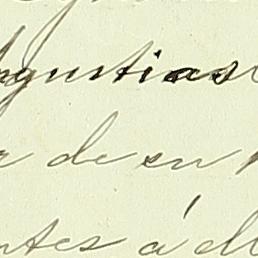 Angustias
de su
ntes á el